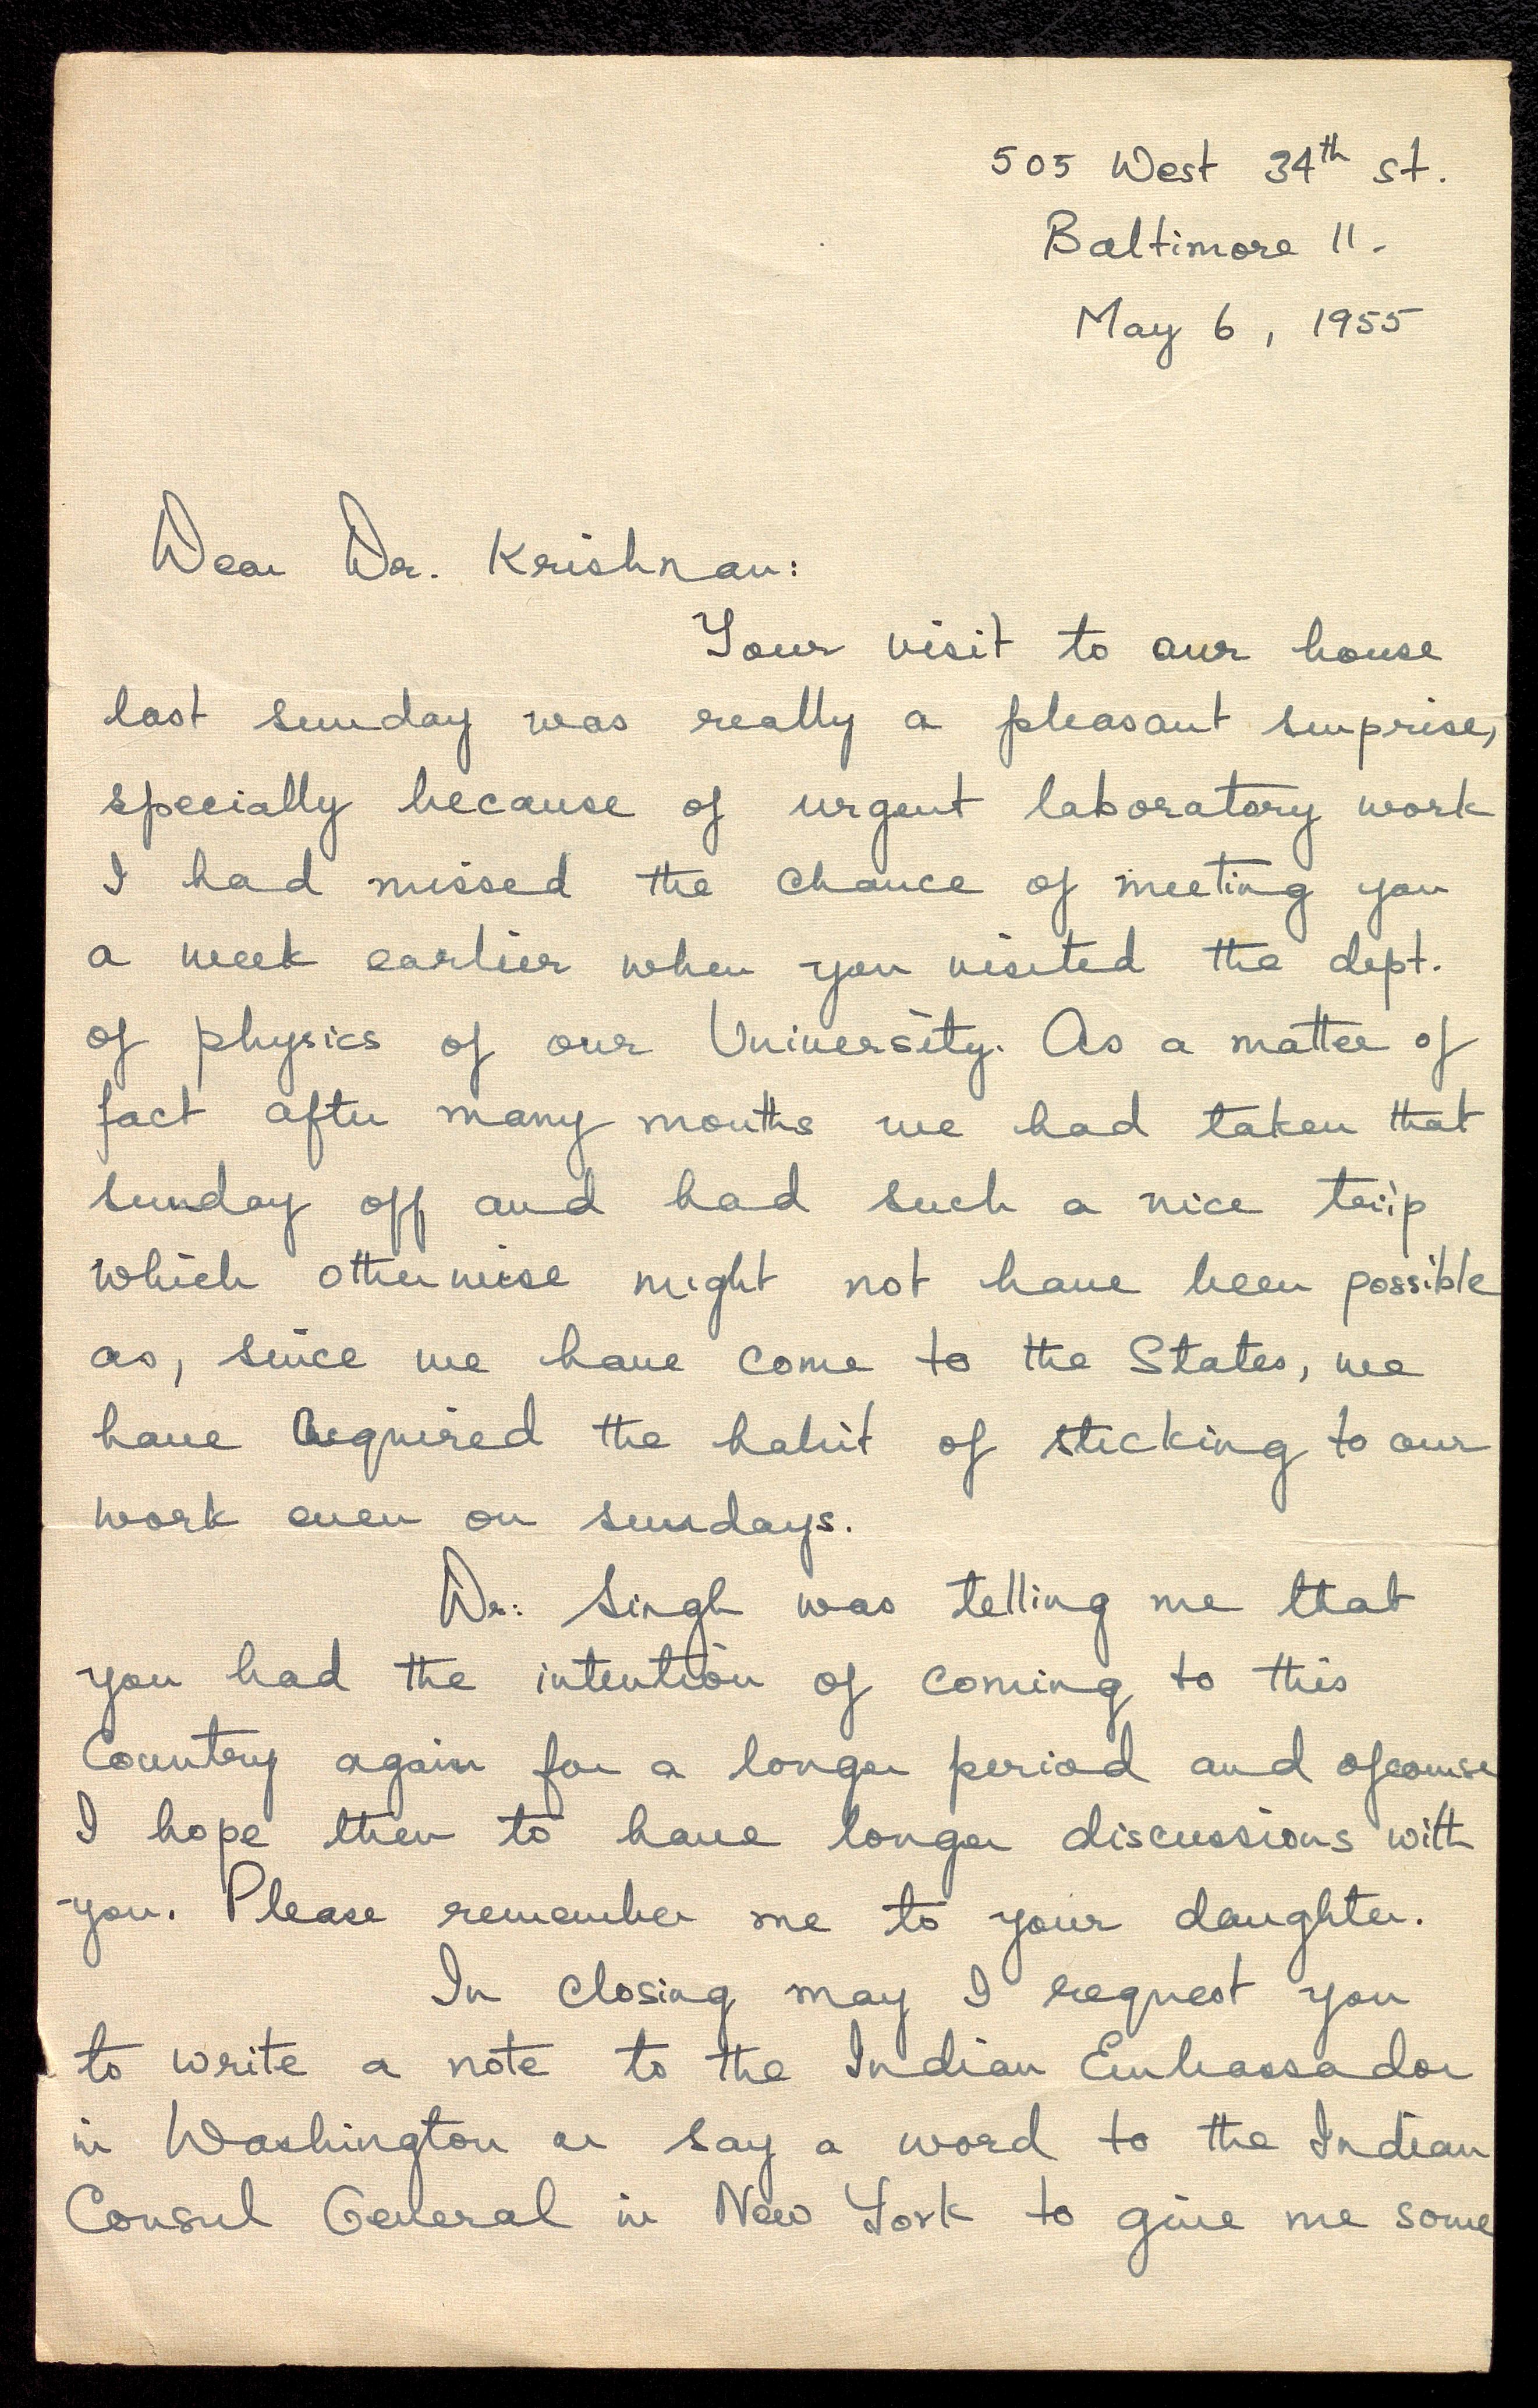 505 West 34th St.
Baltimore 11.
May 6, 1955
Dear Dr. Krishnan:
Your visit to our house
last sunday was really a pleasant surprise,
specially because of urgent laboratory work
I had missed the chance of meeting you
a week earlier when you visited the dept.
of physics of our University. As a matter of
fact after many months we had taken that
sunday off and had such a nice trip
which otherwise might not have been possible
as, since we have come to the States, we
have acquired the habit of sticking to our
work even on sundays.
Dr. Singh was telling me that
you had the intention of coming to this
Country again for a longer period and ofcourse
I hope then to have longer discussions with
you. Please remember me to your daughter.
In closing may I request you
to write a note to the Indian Embassador
in Washington or say a word to the Indian
Consul General in New York to give me some